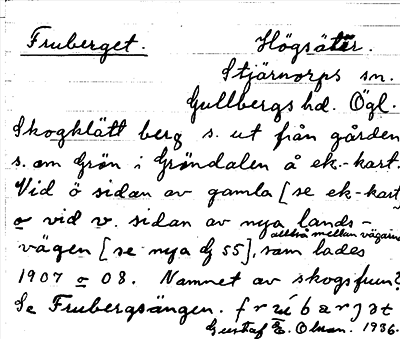 Fruberget. Högsäter.
Stjärnorps sn.
Gullbergs hd. Ögl.
Skogklätt berg s. ut från gården
s. om Grön i Gröndalen å ek.-kart.
Vid ö sidan av gamla [se ek-kart
o vid v. sidan av nya lands-
alltså mellan vägarna
vägen [se nya G 55], som lades
1907 o 08. Namnet av skogsfrun?
Se Frubergsängen. frúbærjət
Gustaf E. Olson. 1936.